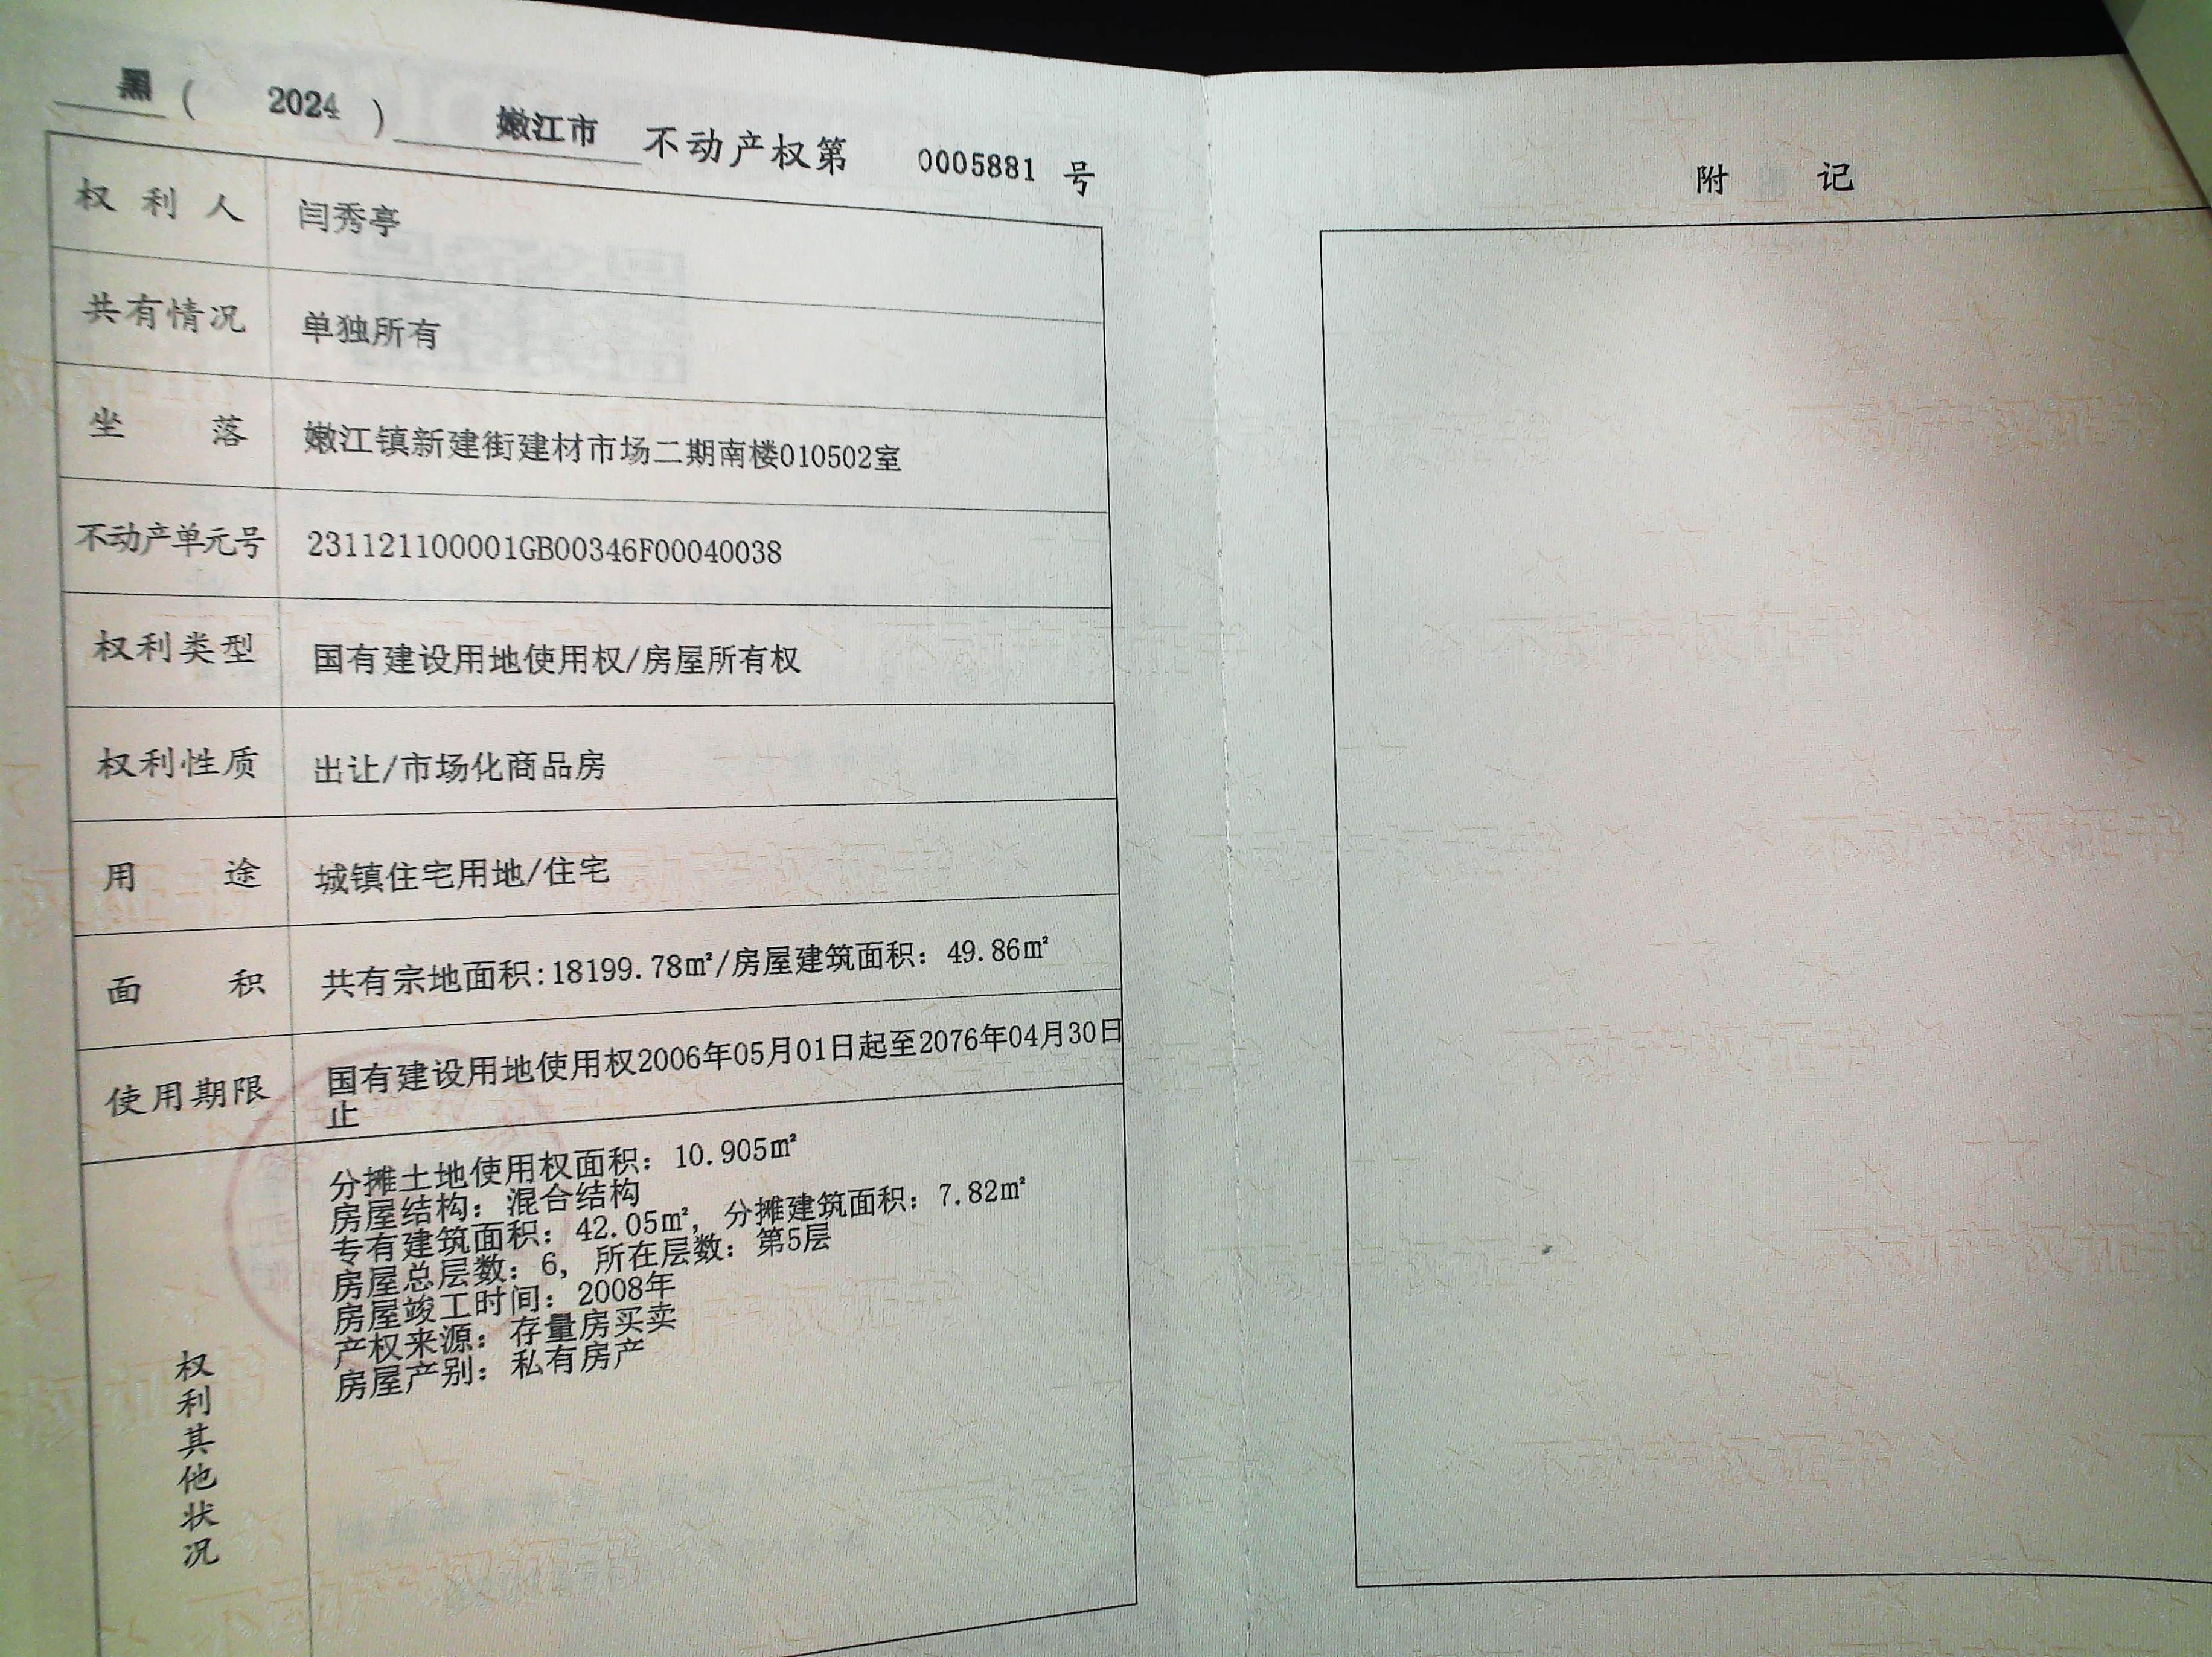 黑(2024)嫩江市不动产权第0005881号
权利人 闫秀亭
共有情况 单独所有
坐落 嫩江镇新建街建材市场二期南楼010502室
不动产单元号 231121100001GB00346F00040038
权利类型 国有建设用地使用权/房屋所有权
权利性质 出让/市场化商品房
用途 城镇住宅用地/住宅
面积 共有宗地面积:18199.78㎡/房屋建筑面积：49.86㎡
使用期限 国有建设用地使用权2006年05月01日起至2076年04月30日
止
权利其他状况
分摊土地使用权面积：10.905㎡
房屋结构：混合结构
专有建筑面积：42.05㎡，分摊建筑面积：7.82㎡
房屋总层数：6，所在层数：第5层
房屋竣工时间：2008年
产权来源：存量房买卖
房屋产别：私有房产
附记